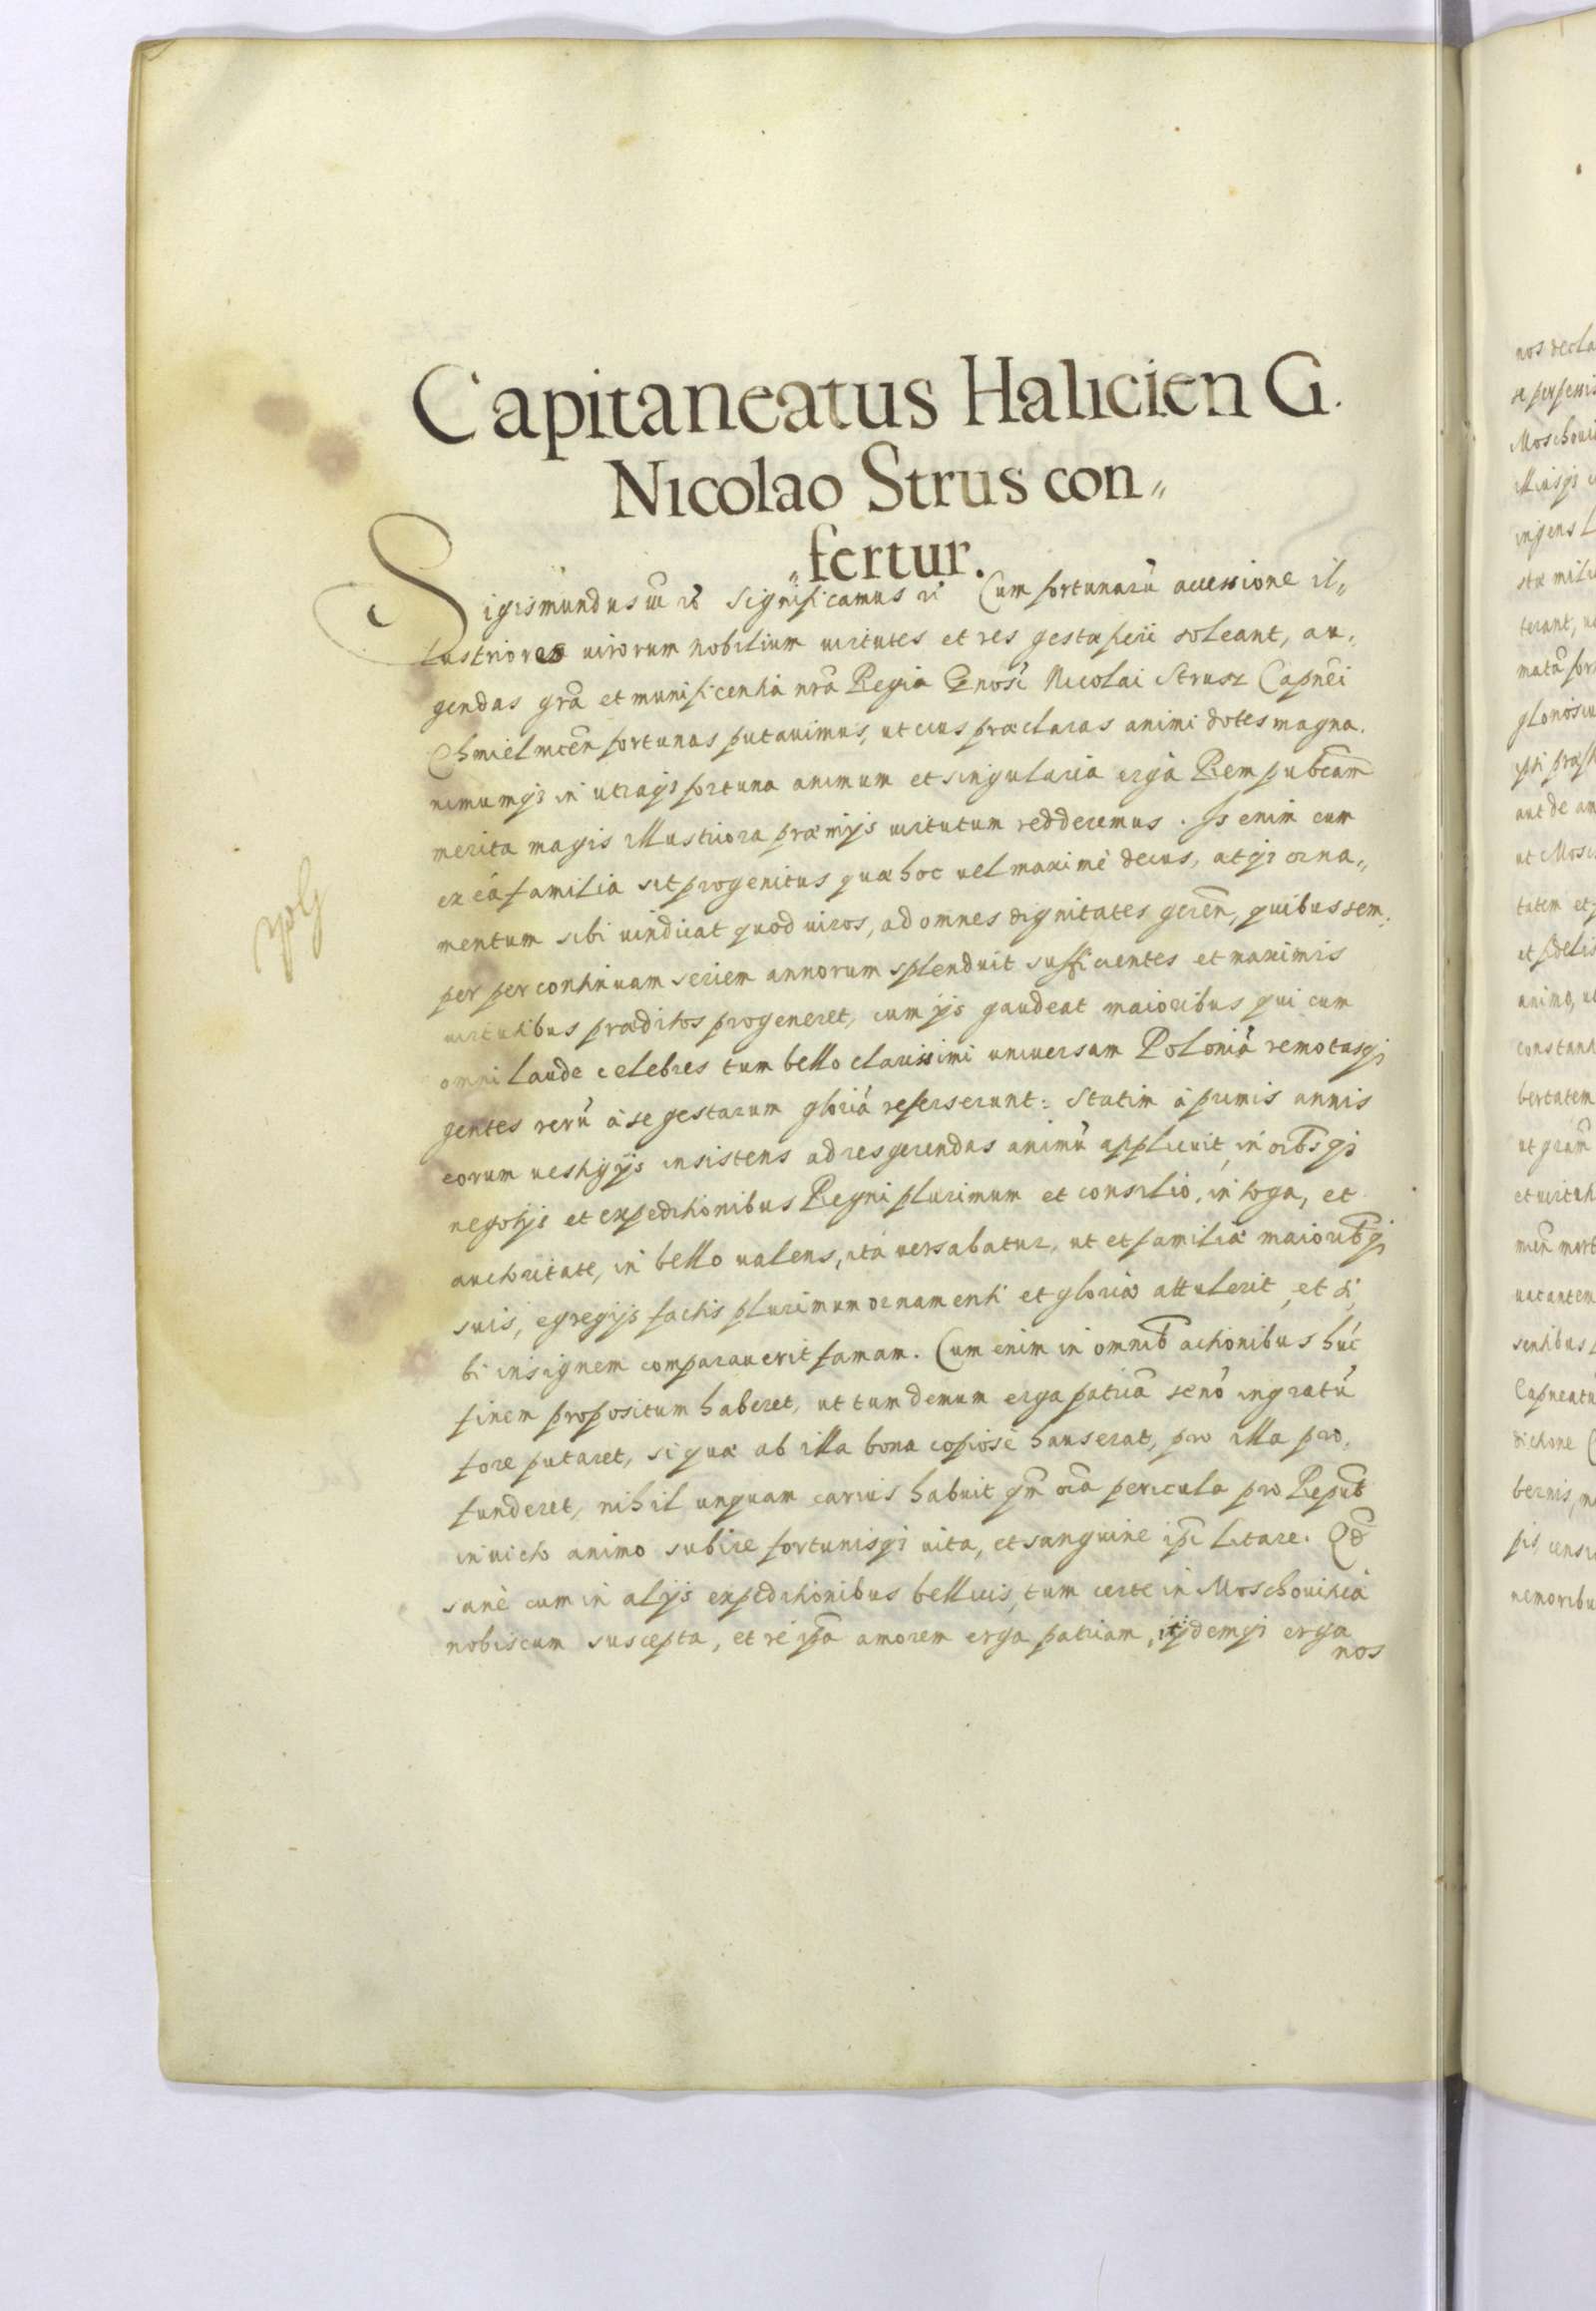 Capitaneatus Halicien G.
Nicolao Strus con„
„fertur.
Sigismundus Significamus Cum fortunarũ accessione il„
lustriores uirorum nobilium uirtutes et res gestæ fieri soleant, au„
gendas gr̃a et munificentia nr̃a Regia Gnosi Nicolai Strusz Capnei
Chmielnicen̄ fortunas putauimus, ut eius præclaras animi dotes magna„
nimumq; in utraq; fortuna animum et singularia erga Rem pubcam
merita magis illustriora præmijs uirtutum redderemus. Is enim cum
ex eá familia sit progenitus quæ hoc uel maximè decus, atq; orna„
mentum sibi uindicat quod uiros, ad omnes dignitates geren̄, quibus sem„
per per continuam seriem annorum splenduit sufficientes et maximis
uirtutibus præditos progeneret, cum ijs gaudeat maioribus qui cum
omni laude celebres tum bello clarissimi uniuersam Poloniã remotasq;
gentes rerũ à se gestarum gloriá referserunt: Statim à primis annis
eorum uestigijs insistens ad res gerendas animũ applicuit, in oĩbsq;
negotijs et expeditionibus Regni plurimum et consilio, in toga, et
authoritate, in bello ualens, ita uersabatur, ut et familiæ maioribq;
suis, egregijs factis plurimum ornamenti et gloriæ attulerit, et si„
bi insignem comparauerit famam. Cum enim in omnib actionibus húc
finem propositum haberet, ut tum demum erga patriã se nõ ingratũ
fore putaret, si quæ ab illa bona copiosè hauserat, pro illa pro„
funderet, nihil unquam carius habuit qm̃ oĩa pericula pro Repub
inuicto animo subire fortunisq; uita, et sanguine ipi litare. Qd̃
sanè cum in alijs expeditionibus bellicis, tum certe in Moschouiticá
nobiscum suscepta, et re ipã amorem erga patriam, fidemq; erga
nos